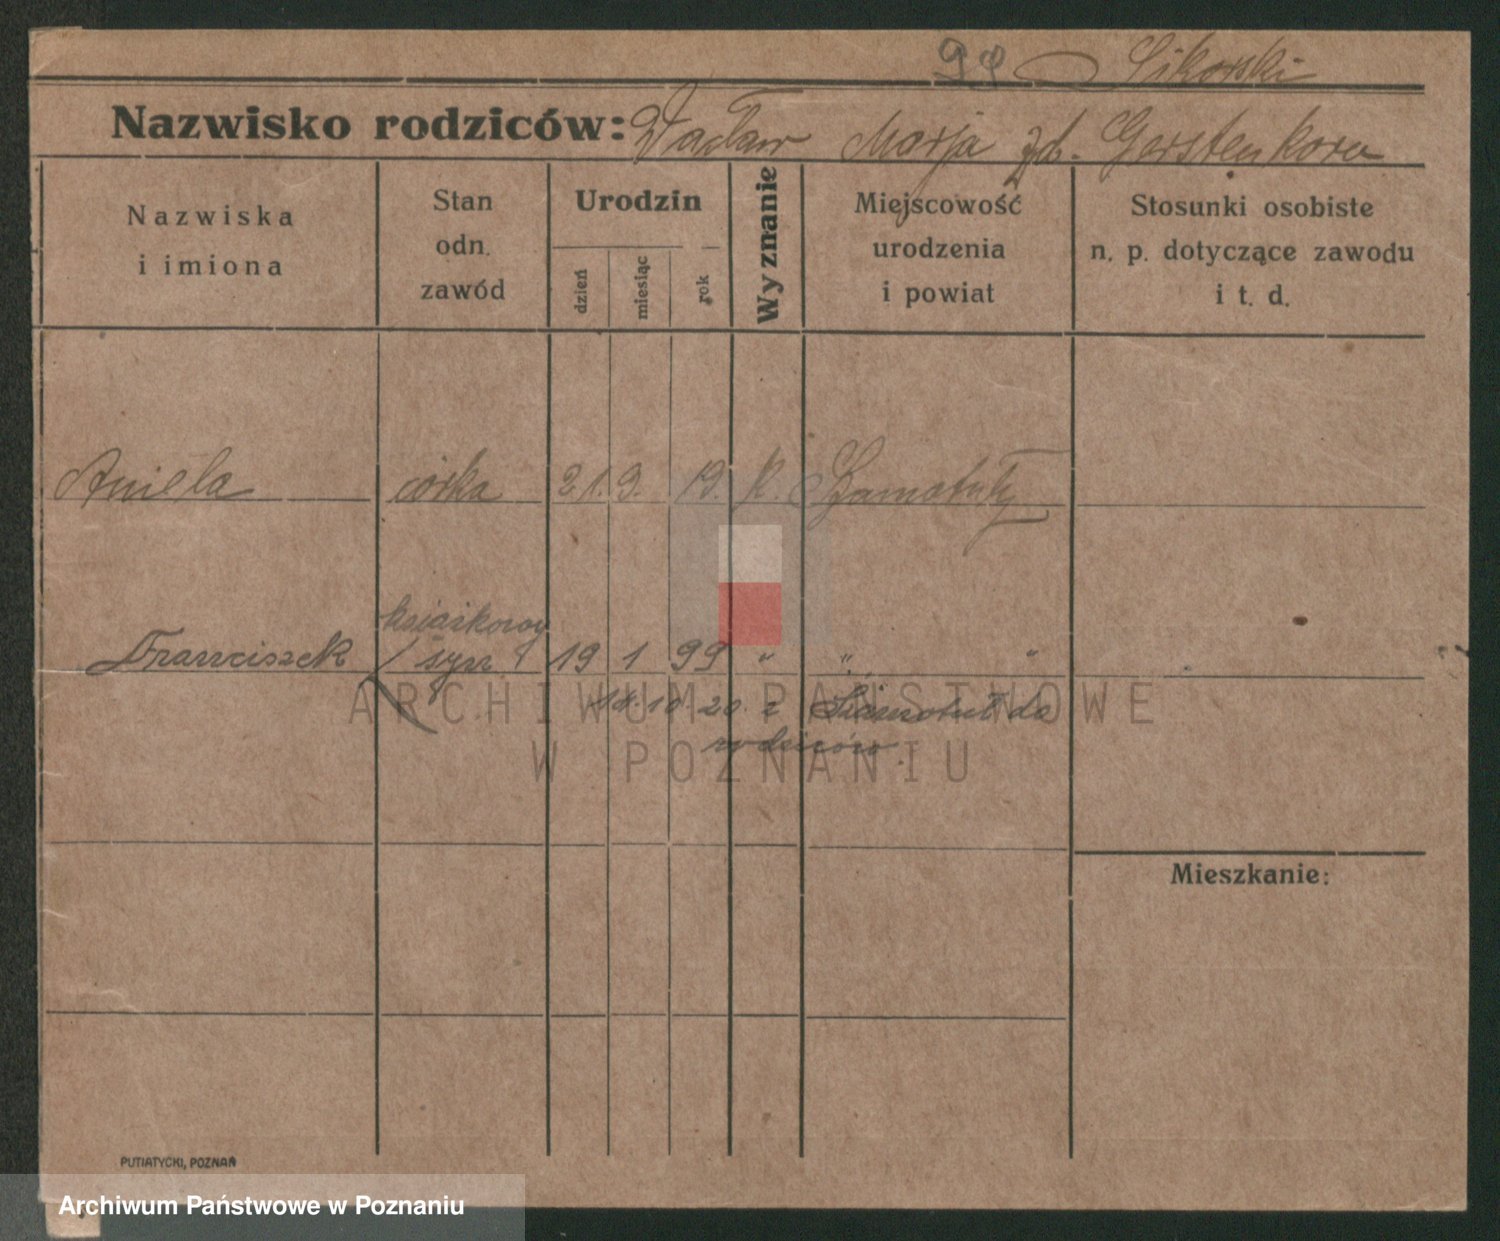 99 Sikorski
Nazwisko rodziców: Wacław Marja zd. Gerstenkorn
Nazwiska
i imiona
Stan
odn.
zawód
Urodzin
dzień
miesiąc
rok
Wyznanie
Miejscowość
urodzenia
i powiat
Stosunki osobiste
n. p. dotyczące zawodu
i t. d.
Aniela córka 21. 9. 19. k. Szamotuły
książkowy
Franciszek syn 19 1 99 " " "
18. 10. 20. z Szamotuł do
rodziców.
ARCHIWUM PAŃSTWOWE
W POZNANIU
Mieszkanie:
PUTIATYCKI, POZNAŃ
Archiwum Państwowe w Poznaniu